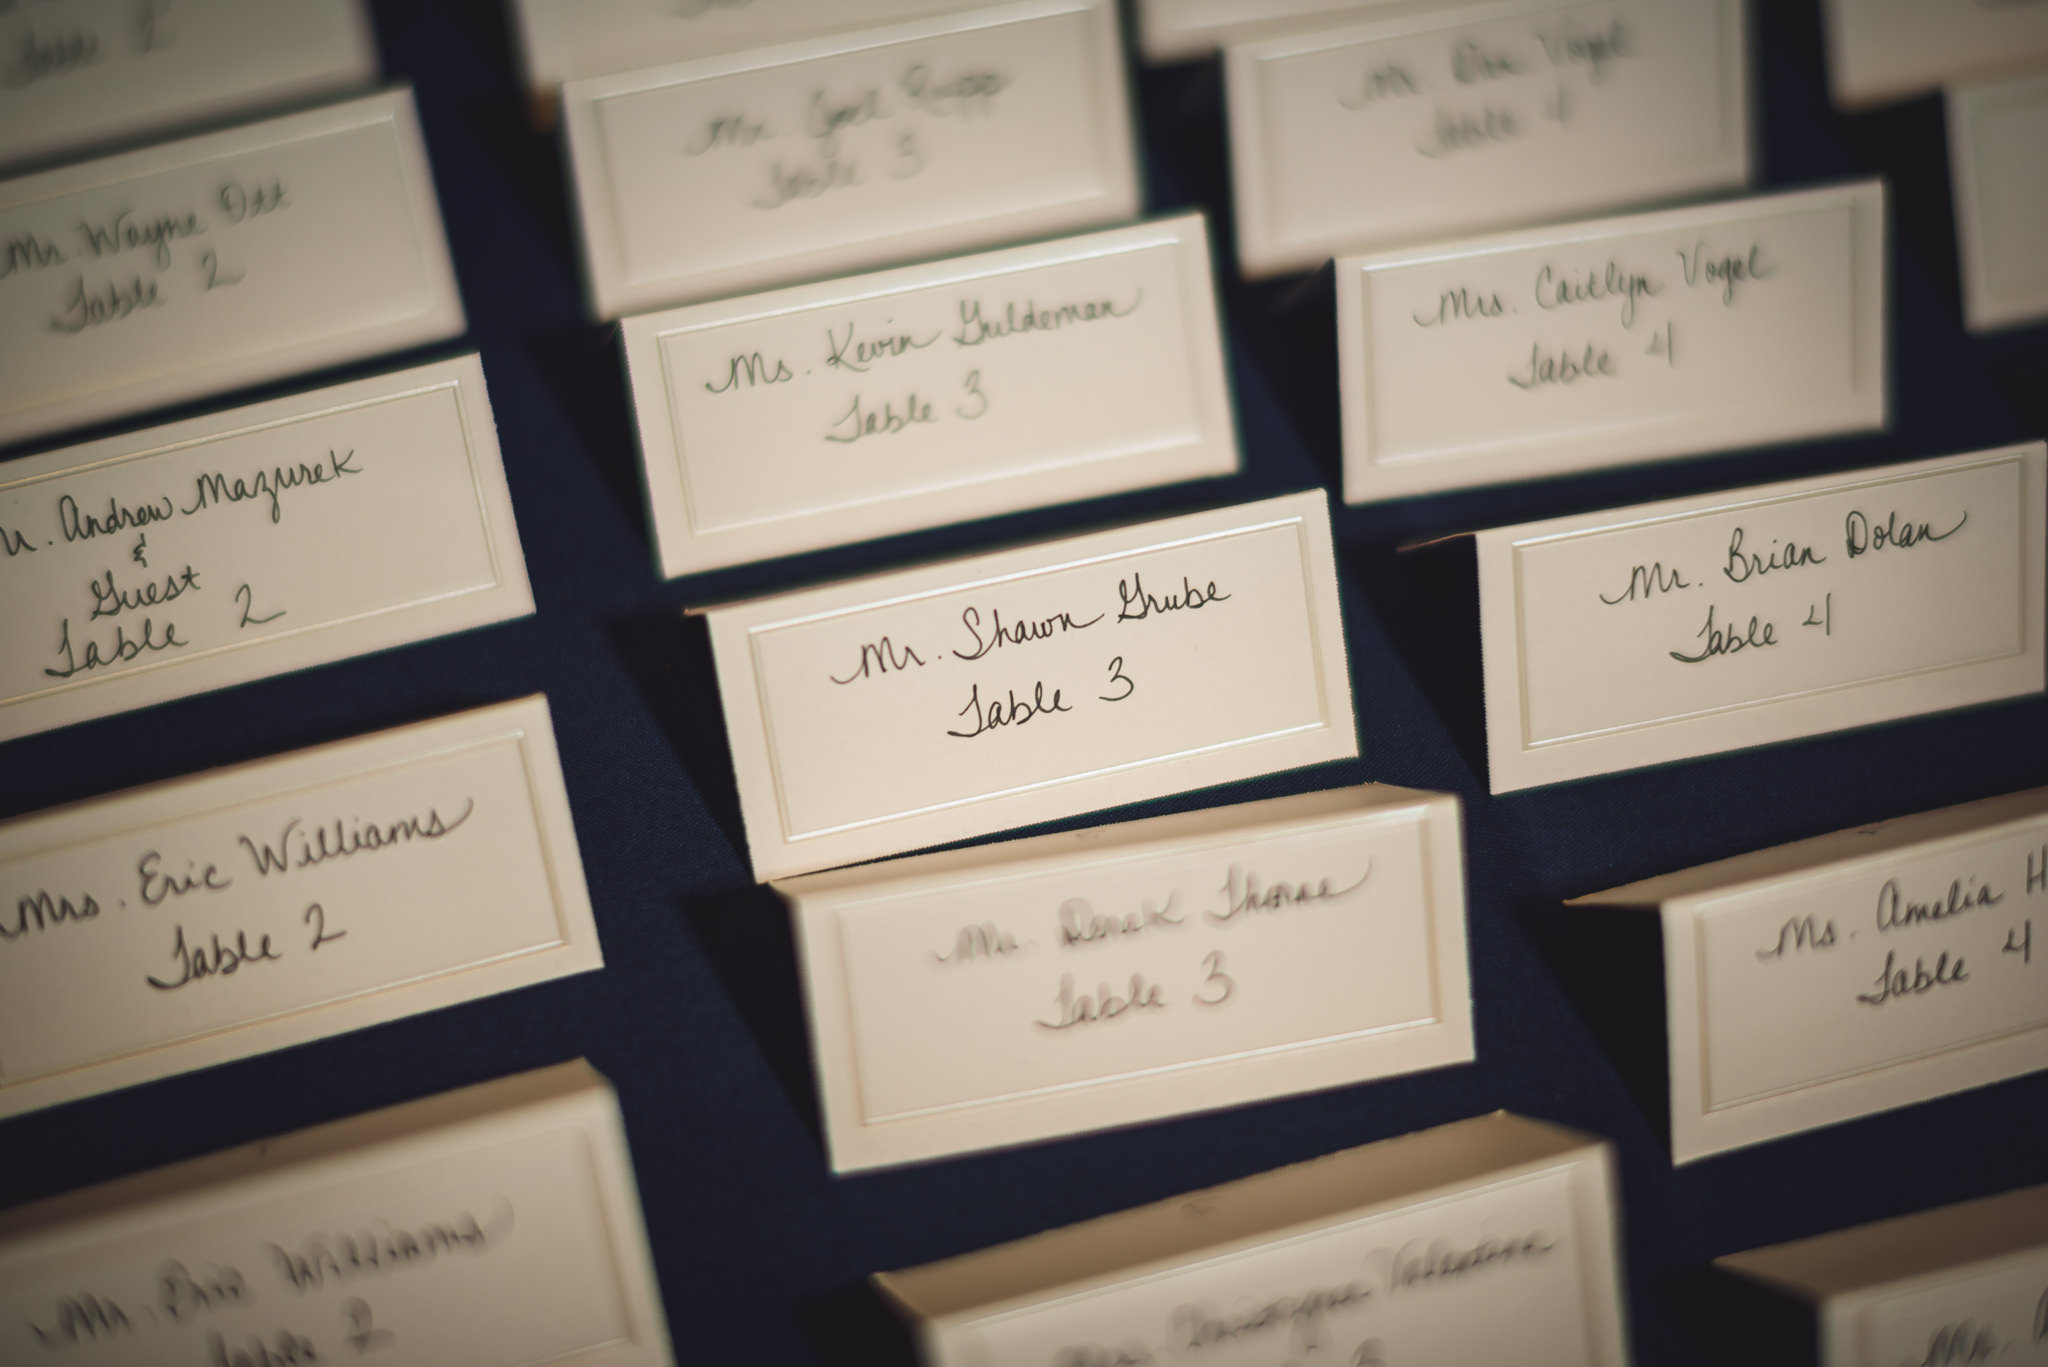 Table 2
Mr. Wayne Ott
Table 2
Andrew Mazurek
&
Guest
Table 2
Mrs. Eric Williams
Table 2
Mr. Eric Williams
Table 2
Table 3
Ms. Kevin Guldeman
Table 3
Mr. Shawn Grube
Table 3
Mr. Derek Thorne
Table 3
Valentine
Vogel
Table 4
Mrs. Caitlyn Vogel
Table 4
Mr. Brian Dolan
Table 4
Ms. Amelia H
Table 4